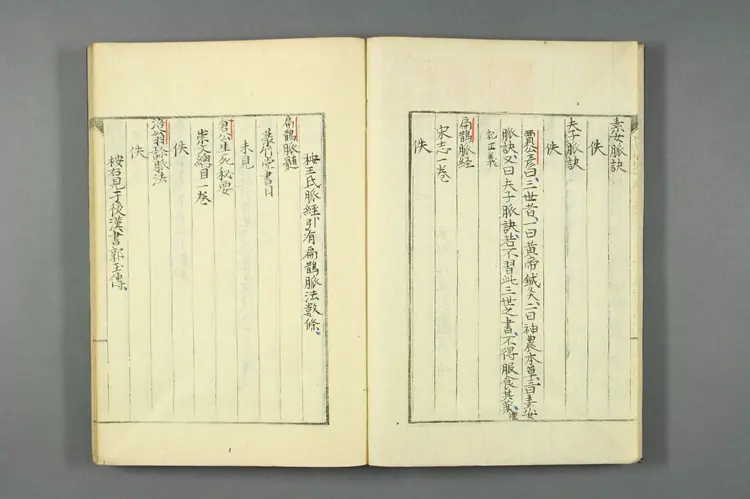 素女脈訣
佚
夫子脈訣
佚
賈公彥曰三世者一曰黃帝鍼灸二曰神農本草三曰素女
脈訣又曰夫子脈訣若不習此三世之書不得服食其藥禮
記正義
扁鵲脈經
宋志一卷
佚
桉王氏脈經引有扁鵲脈法數條
扁鵲脈髓
菉竹堂書目
未見
倉公生死秘要
崇文總目一卷
佚
涪翁診脈法
佚
桉右見于後漢書郭玉傳